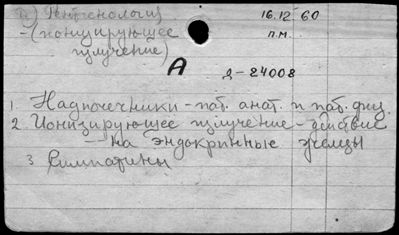 Рентгенология
16.12 60
- (ионизирующее
п.м.
излучение)
А
Д-24008
1. Надпочечники - пат. анат. и пат. физ.
2 Ионизирующее излучение - действие
— на эндокринные железы
3 Симпатины